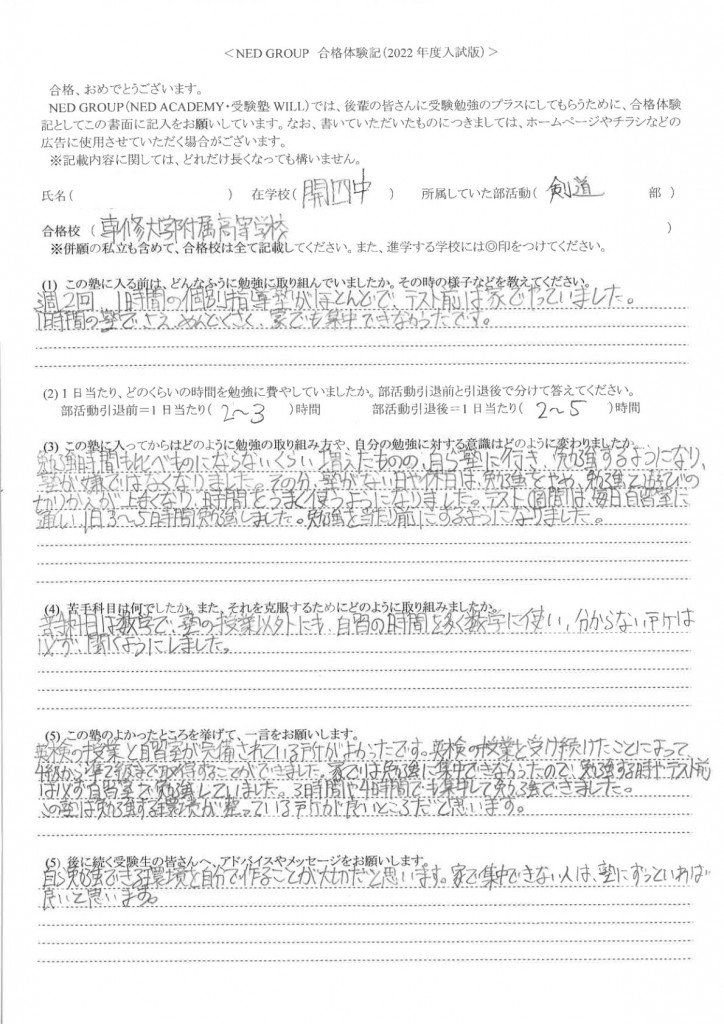 ＜NED GROUP 合格体験記（2022 年度入試版）＞
合格、おめでとうございます。
NED GROUP（NED ACADEMY・受験塾 WILL）では、後輩の皆さんに受験勉強のプラスにしてもらうために、合格体験
記としてこの書面に記入をお願いしています。なお、書いていただいたものにつきましては、ホームページやチラシなどの
広告に使用させていただく場合がございます。
※記載内容に関しては、どれだけ長くなっても構いません。
氏名（ ） 在学校（ 開四中 ） 所属していた部活動（ 剣道 部 ）
合格校 （ 専修大学附属高等学校 ）
※併願の私立も含めて、合格校は全て記載してください。また、進学する学校には◎印をつけてください。
(1) この塾に入る前は、どんなふうに勉強に取り組んでいましたか。その時の様子などを教えてください。
週2回、1時間の個別指導塾がほとんどで、テスト前は家でやっていました。
1時間の塾でさえ、めんどくさく、家でも集中できなかったです。
(2) 1 日当たり、どのくらいの時間を勉強に費やしていましたか。部活動引退前と引退後で分けて答えてください。
部活動引退前＝1 日当たり（ 2〜3 ）時間 部活動引退後＝1 日当たり（ 2〜5 ）時間
(3) この塾に入ってからはどのように勉強の取り組み方や、自分の勉強に対する意識はどのように変わりましたか。
勉強時間も比べものにならないくらい増えたものの、自ら塾に行き、勉強するようになり、
塾が嫌ではなくなりました。その分、塾がない日や休日は、勉強をやめ、勉強と遊びの
切りかえが上手くなり、時間をうまく使うようになりました。テスト1週間前は毎日自習室に
通い、1日3〜5時間勉強しました。勉強を当たり前にするようになりました。
(4) 苦手科目は何でしたか。また、それを克服するためにどのように取り組みましたか。
苦手科目は数学で、塾の授業以外にも、自習の時間を多く数学に使い、分からない所は
必ず聞くようにしました。
(5) この塾のよかったところを挙げて、一言をお願いします。
英検の授業と自習室が完備されている所がよかったです。英検の授業を受け続けたことによって、
4級から準2級まで取得することができました。家では勉強に集中できなかったので、勉強する時やテスト前
は必ず自習室で勉強していました。3時間や4時間でも集中して勉強できました。
この塾は勉強する環境が整っている所が良いところだと思います。
(5) 後に続く受験生の皆さんへ、アドバイスやメッセージをお願いします。
自ら勉強できる環境を自分で作ることが大切だと思います。家で集中できない人は、塾にずっといれば
良いと思います。